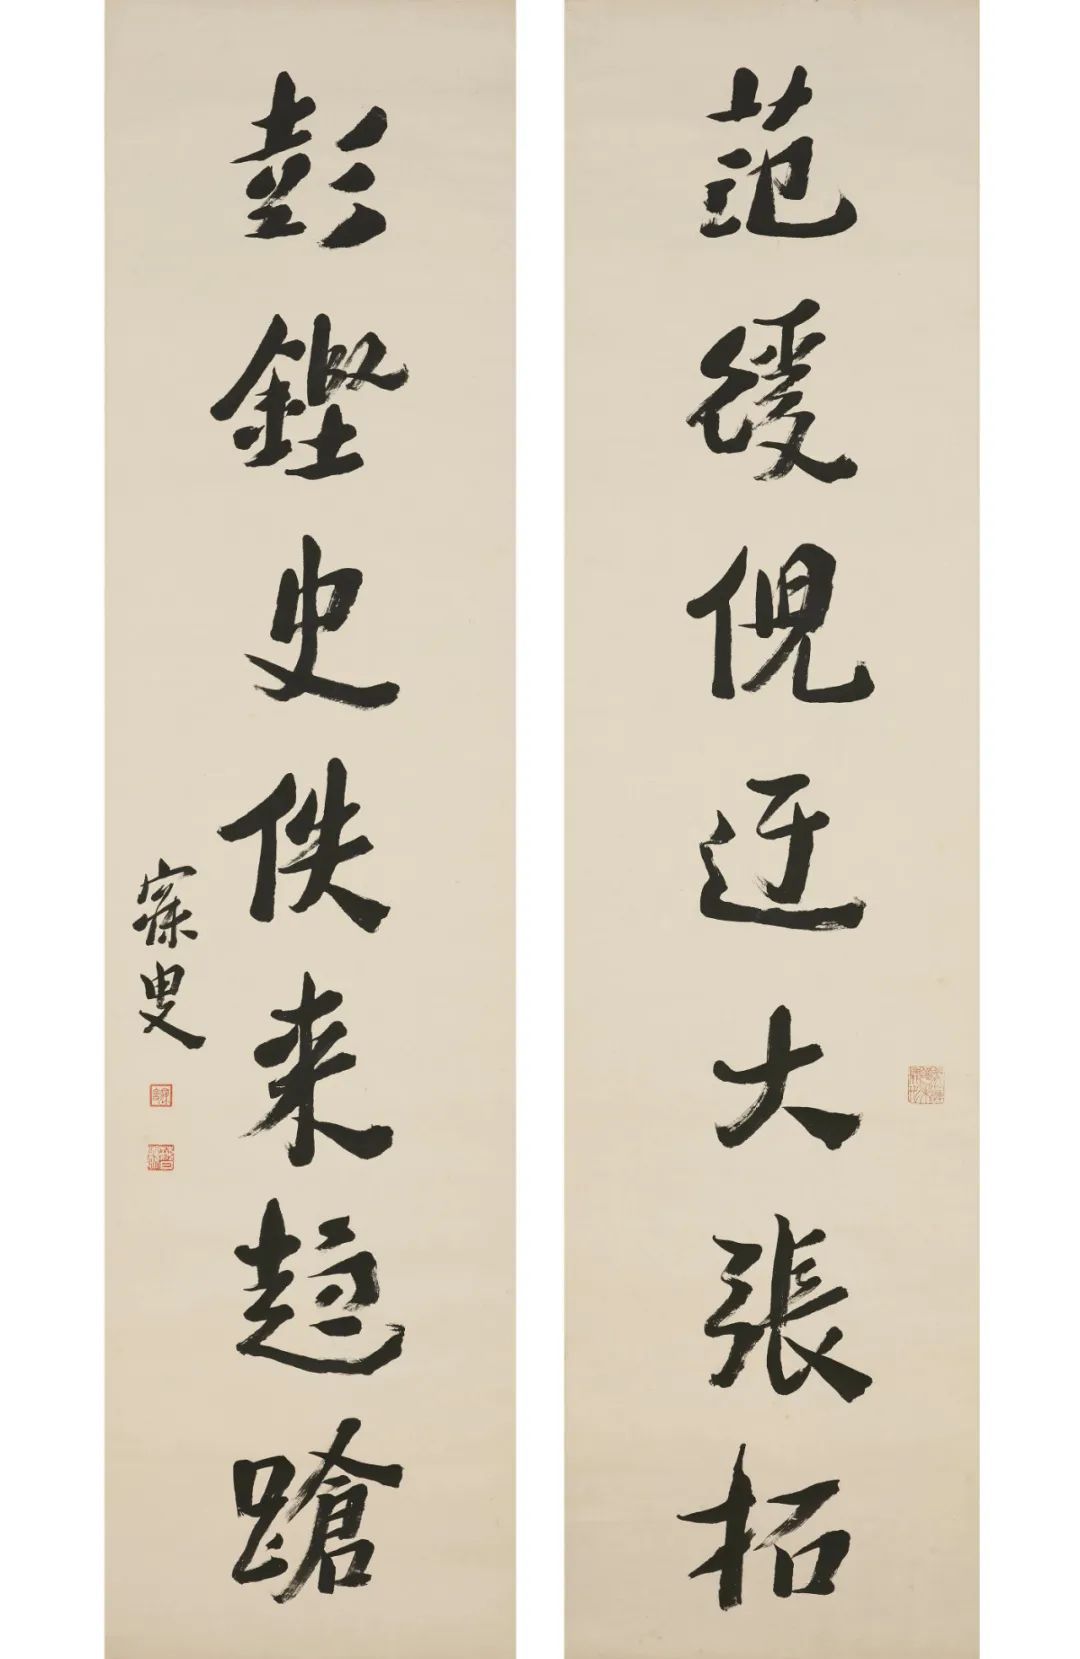 范緩倪迂大張拓
彭鏗史佚来趍蹌
寐叟